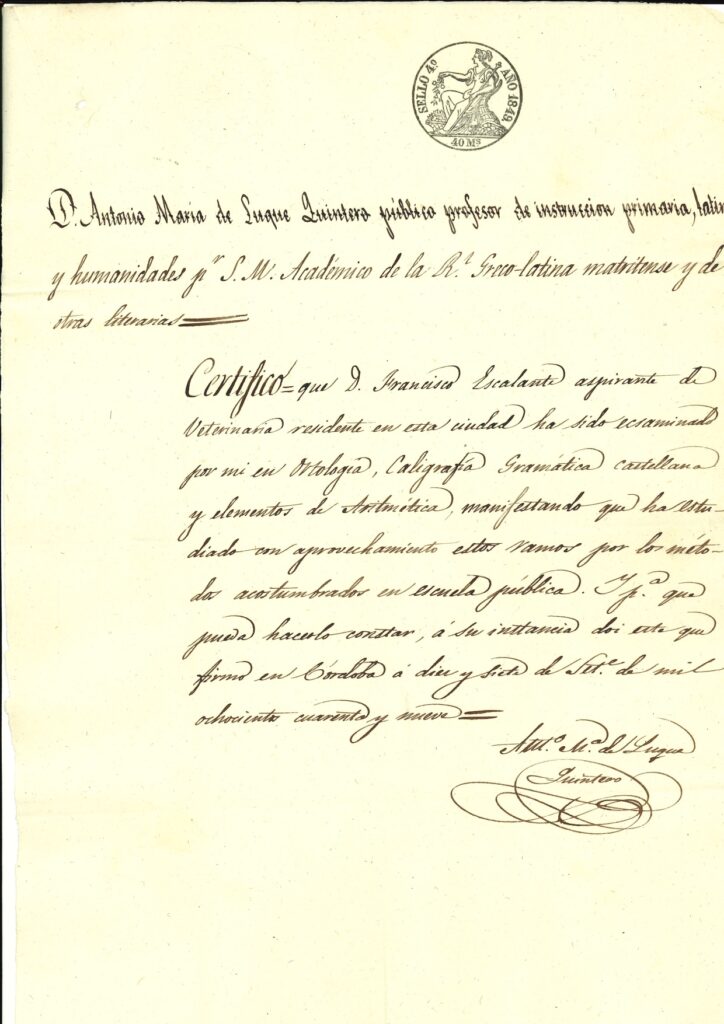 SELLO 4.º AÑO 1849.
40 Ms
D. Antonio María de Luque Quintero público profesor de instruccion primaria, latin
y humanidades pr S. M. Académico de la Rl Greco-latina matritense y de
otras literarias
Certifico = que D. Francisco Escalante aspirante de
Veterinaria residente en esta ciudad ha sido ecsaminado
por mi en Ortologia, Caligrafia Gramática castellana
y elementos de Aritmética, manifestando que ha estu-
diado con aprovechamiento estos ramos por los méto-
dos acostumbrados en escuela pública. Y p.ª que
pueda hacerlo constar, á su instancia doi este que
firmo en Córdoba á diez y siete de Set.e de mil
ochocientos cuarenta y nueve =
Ant.º M.ª de Luque
Quintero